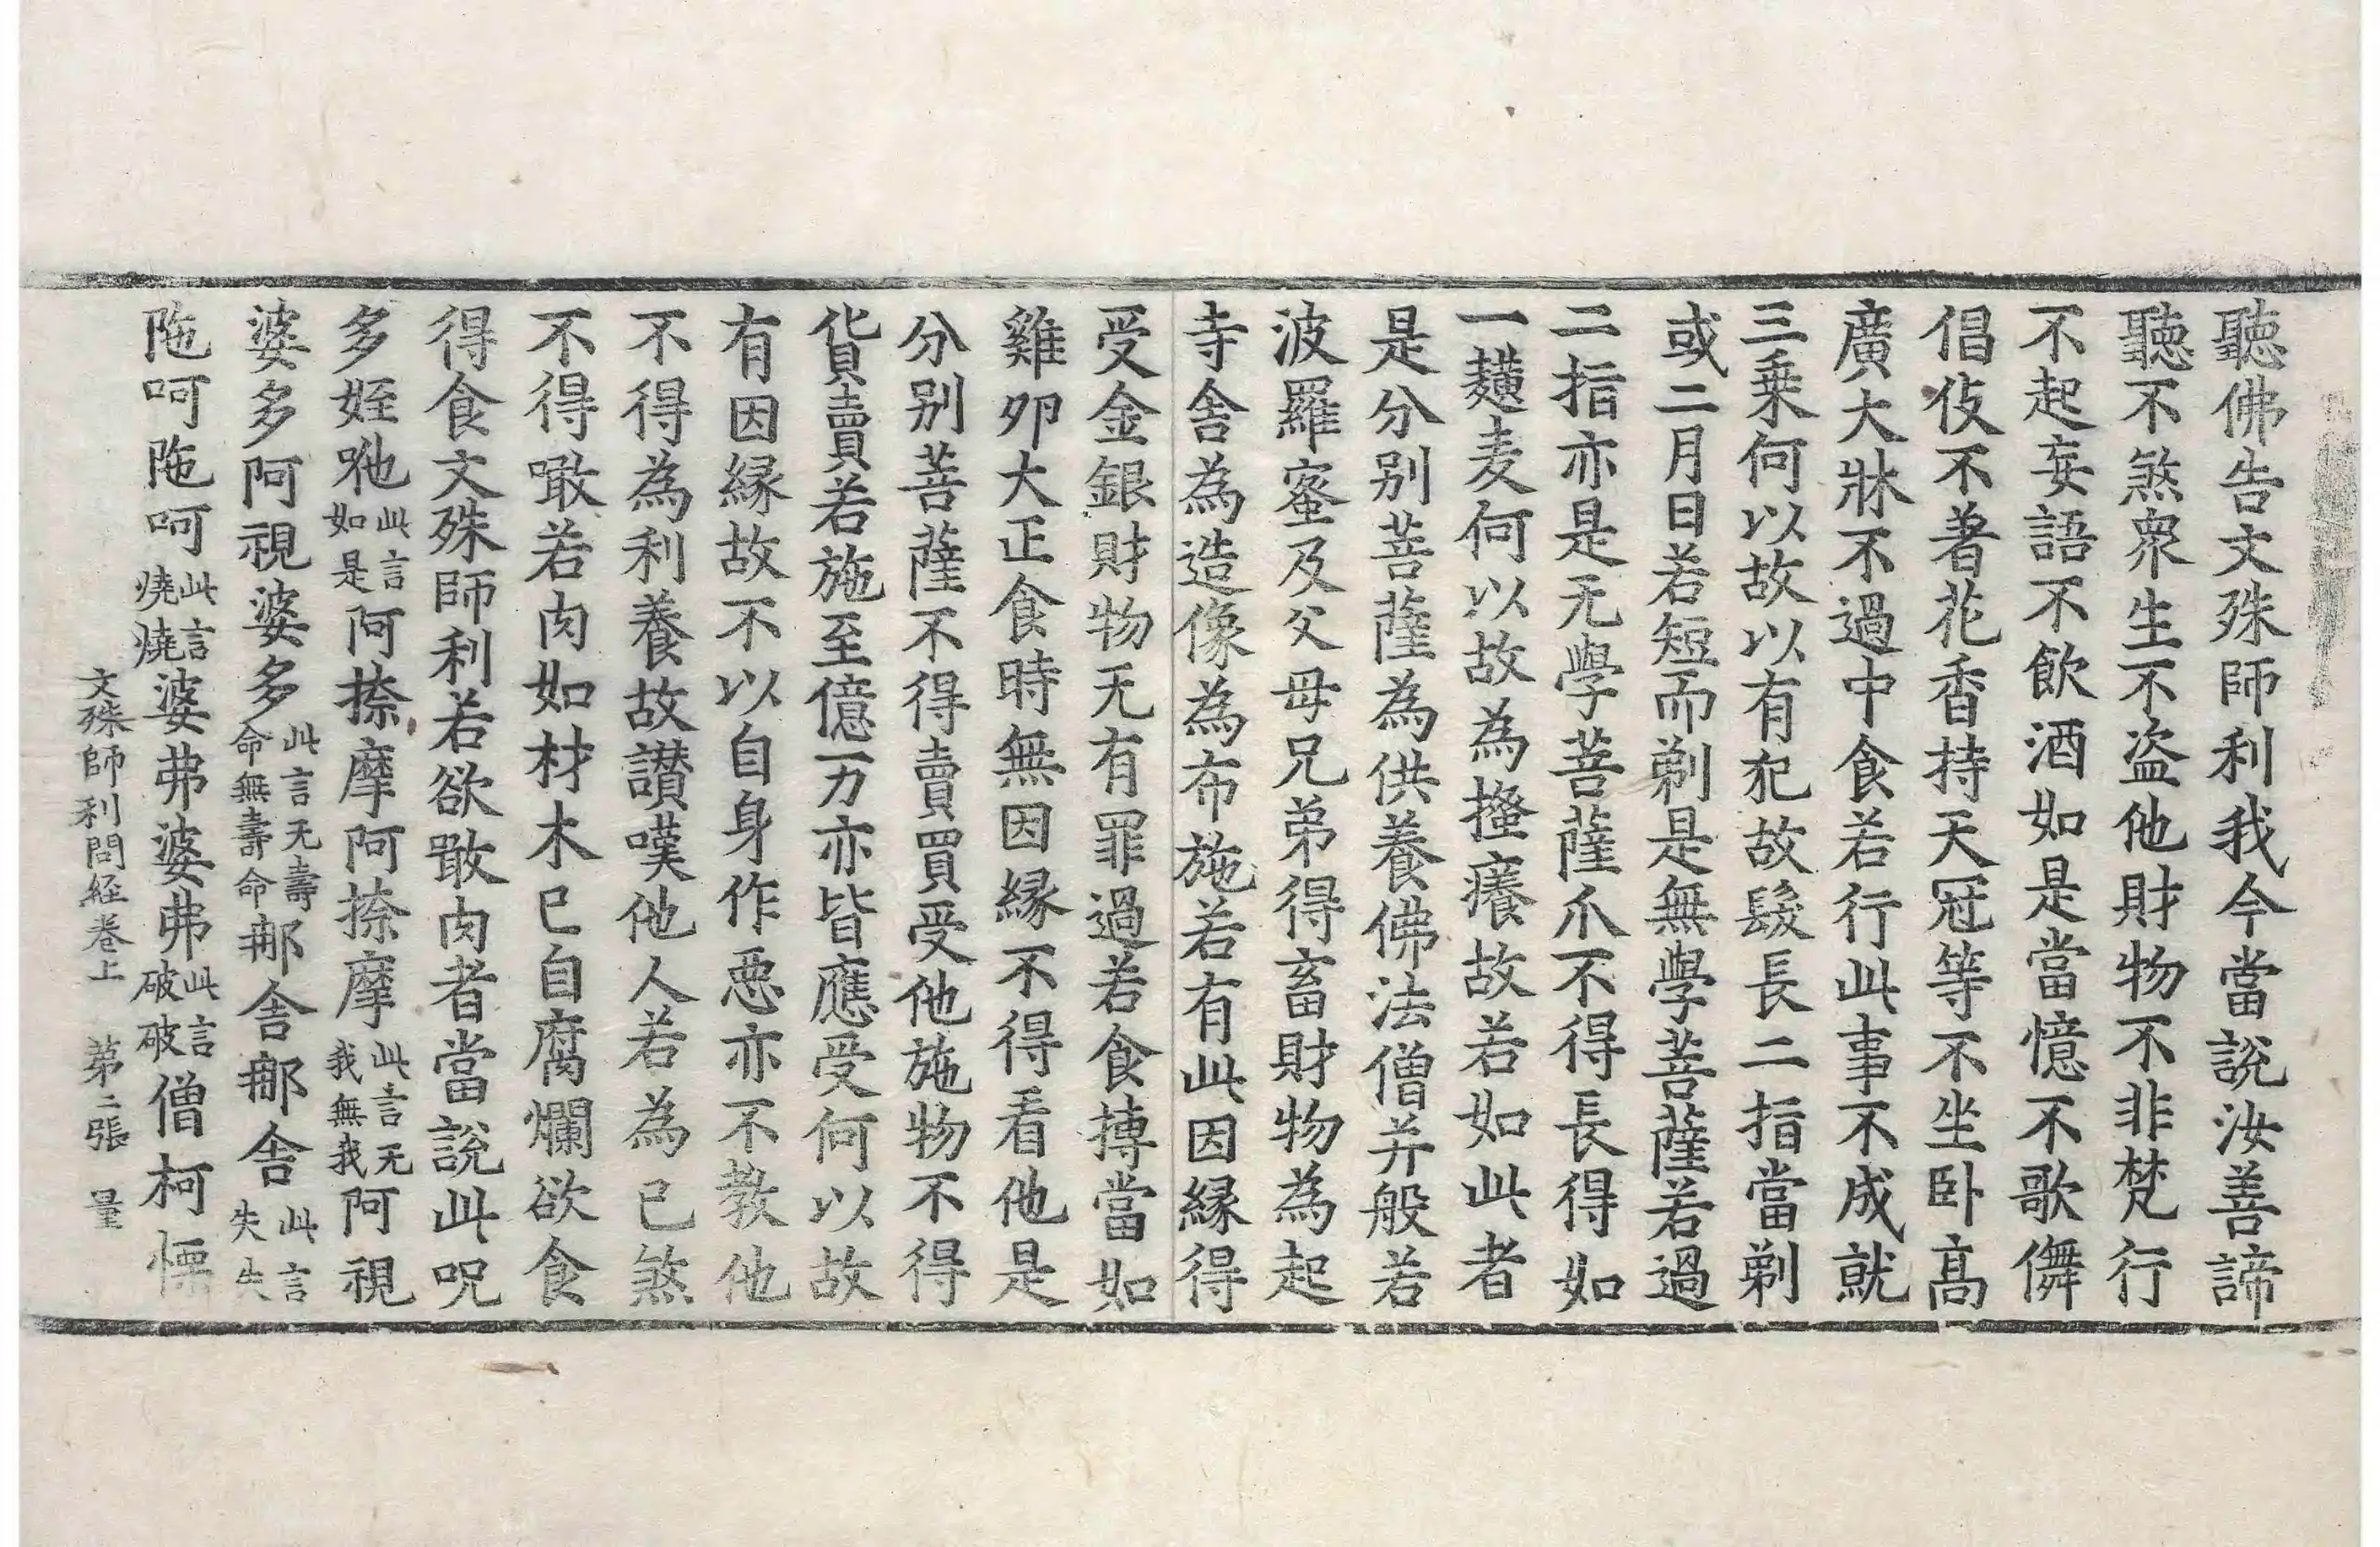 聽佛告文殊師利我今當說汝善諦
聽不煞衆生不盗他財物不非梵行
不起妄語不飲酒如是當憶不歌儛
倡伎不著花香持天冠等不坐卧髙
廣大牀不過中食若行此事不成就
三乗何以故以有犯故髮長二指當剃
或二月日若短而剃是無學菩薩若過
二指亦是无學菩薩爪不得長得如
一𪍿麦何以故為搔癢故若如此者
是分别菩薩為供養佛法僧并般若
波羅蜜及父母兄弟得畜財物為起
寺舎為造像為布施若有此因縁得
受金銀財物无有罪過若食摶當如
雞夘大正食時無因縁不得看他是
分别菩薩不得賣買受他施物不得
貨賣若施至億万亦皆應受何以故
有因縁故不以自身作惡亦不教他
不得為利養故讃嘆他人若為已煞
不得噉若肉如材木已自腐爛欲食
得食文殊師利若欲噉肉者當說此呪
多姪咃此言如是阿捺摩阿捺摩此言无我無我阿視
婆多阿視婆多此言无壽命無壽命那舎那舎此言失失
陁呵陁呵此言燒燒婆弗婆弗此言破破僧柯慄
文殊師利問経巻上 第二張 量